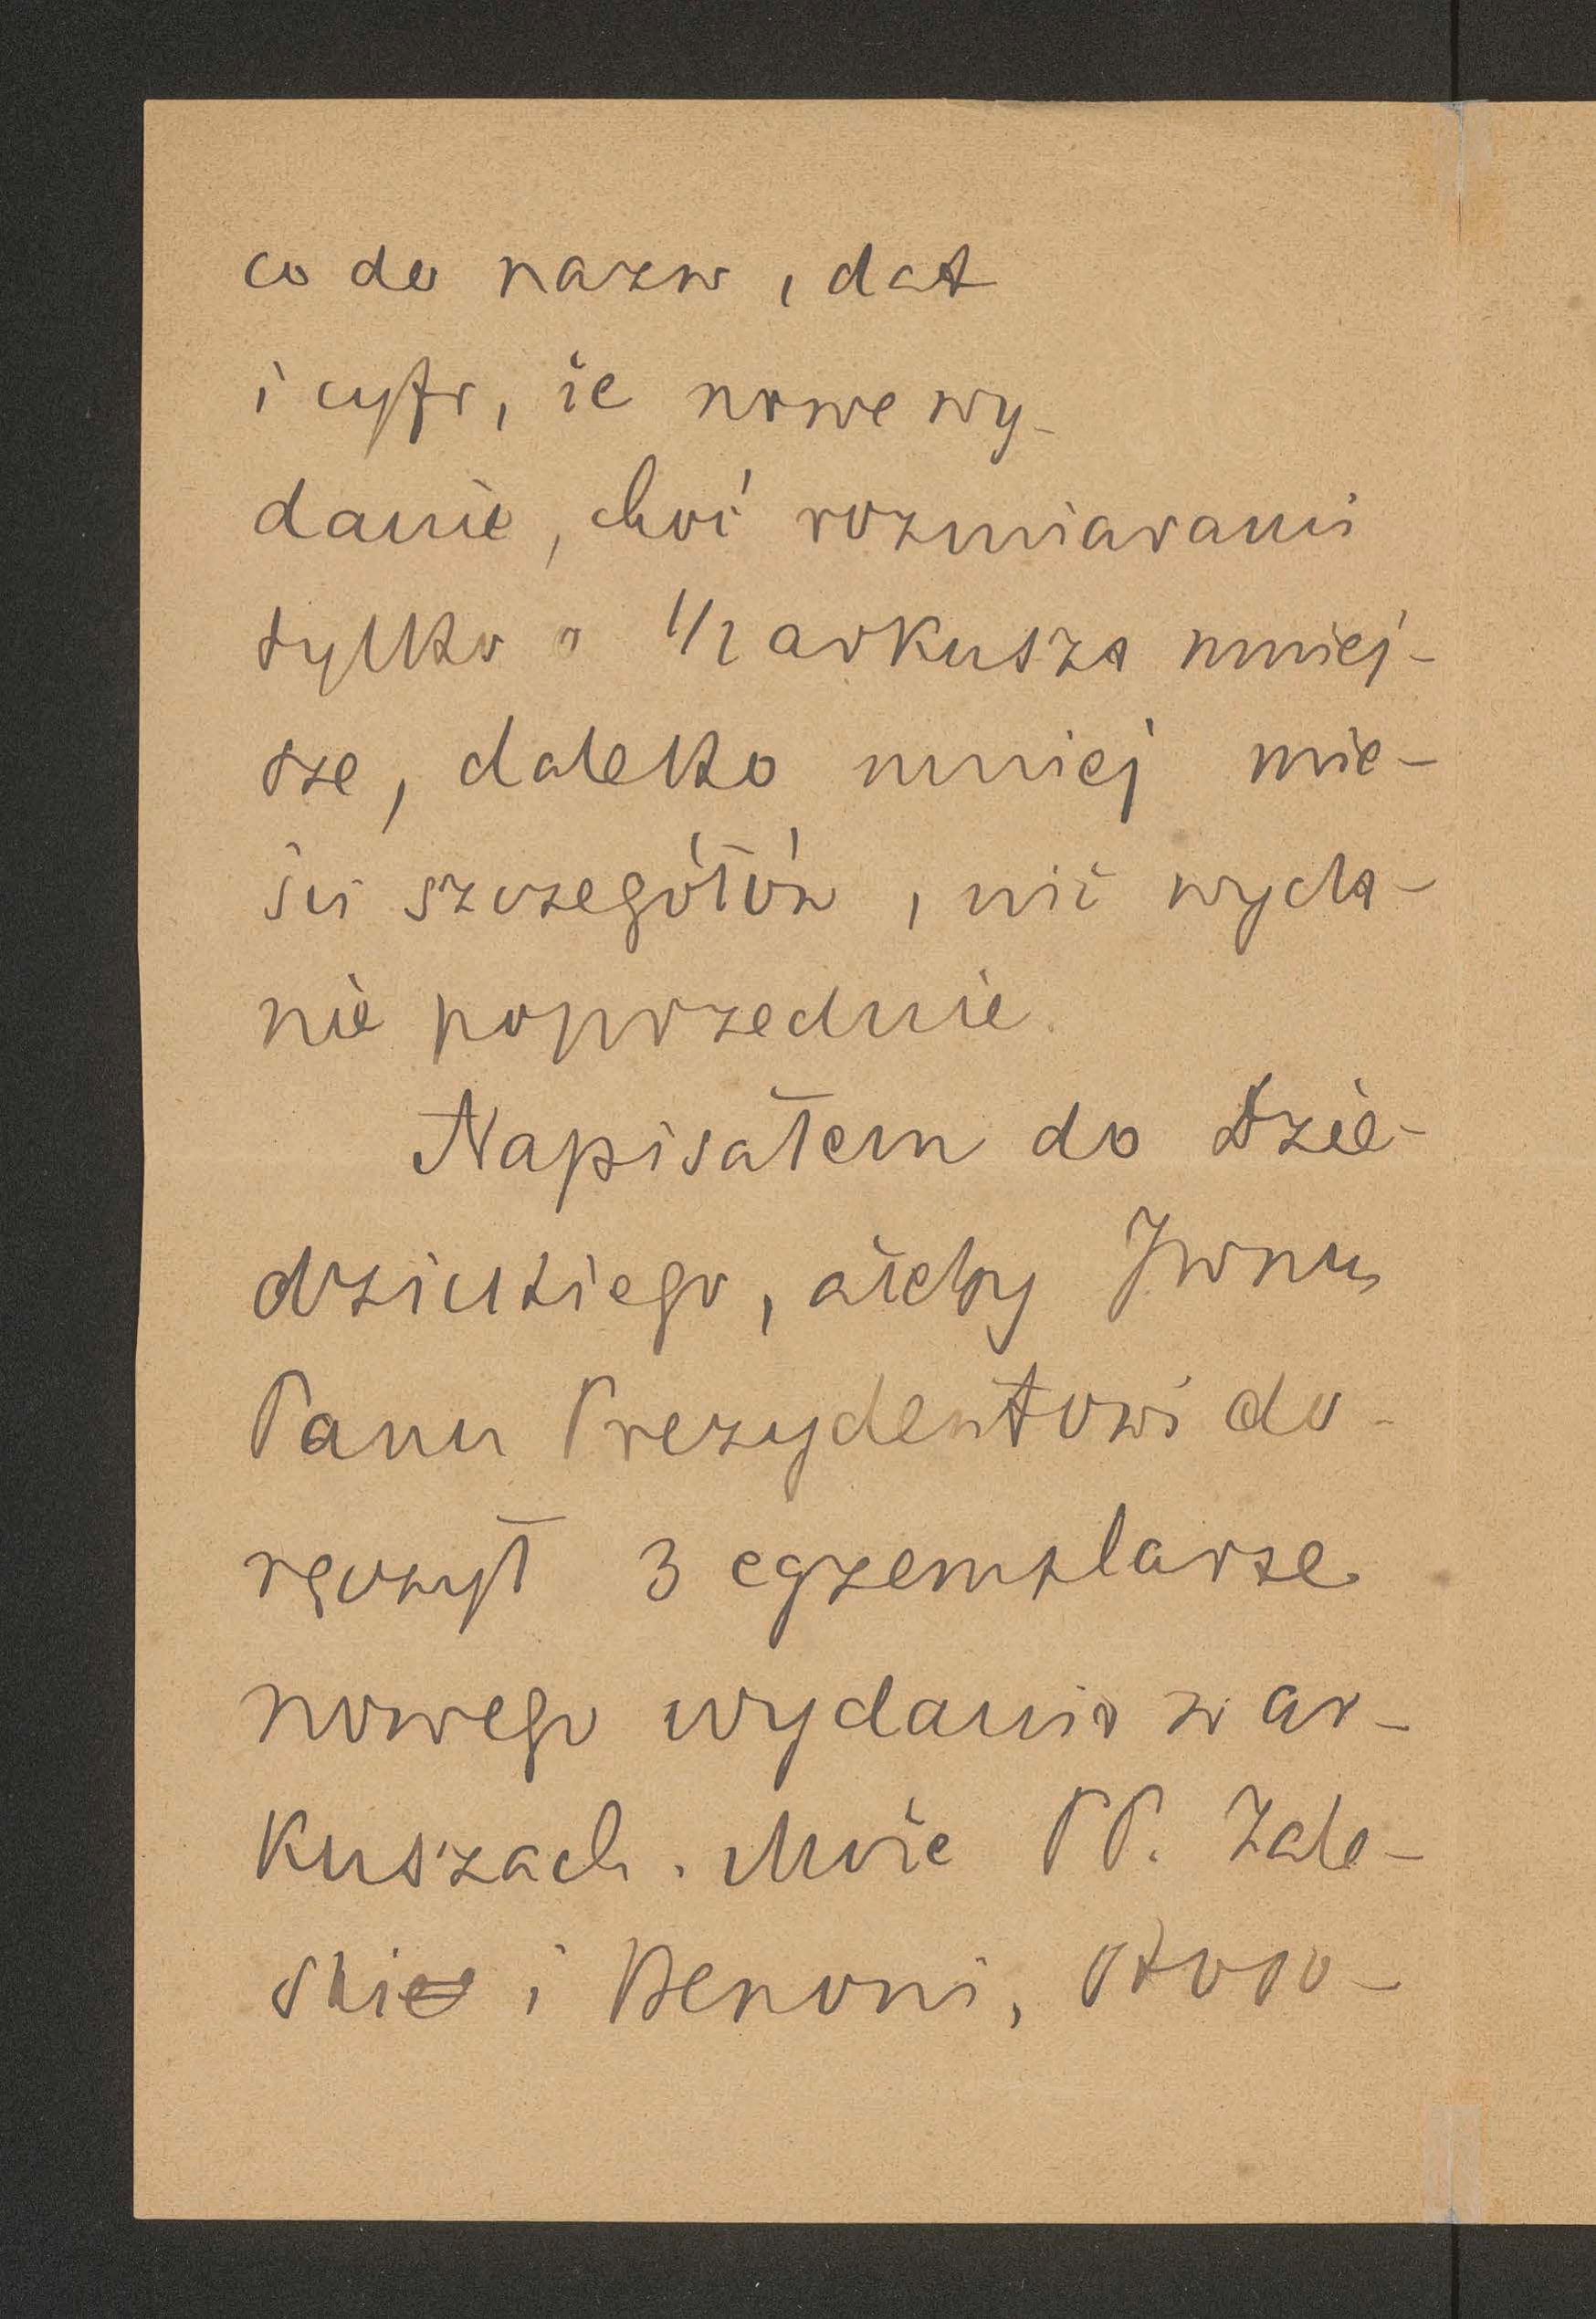 co do nazw, dat
i cyfr, że nowe wy-
danie, choć rozmiarami
tylko o 1/2 arkusza mniej-
sze, daleko mniej mie-
ści szczegółów, niż wyda-
nie poprzednie.
Napisałem do Dzie-
dzickiego, ażeby JWnu
Panu Prezydentowi do-
ręczył 3 egzemplarze
nowego wydania w ar-
kuszach. Może PP. Zale-
ski i Benoni, stoso-